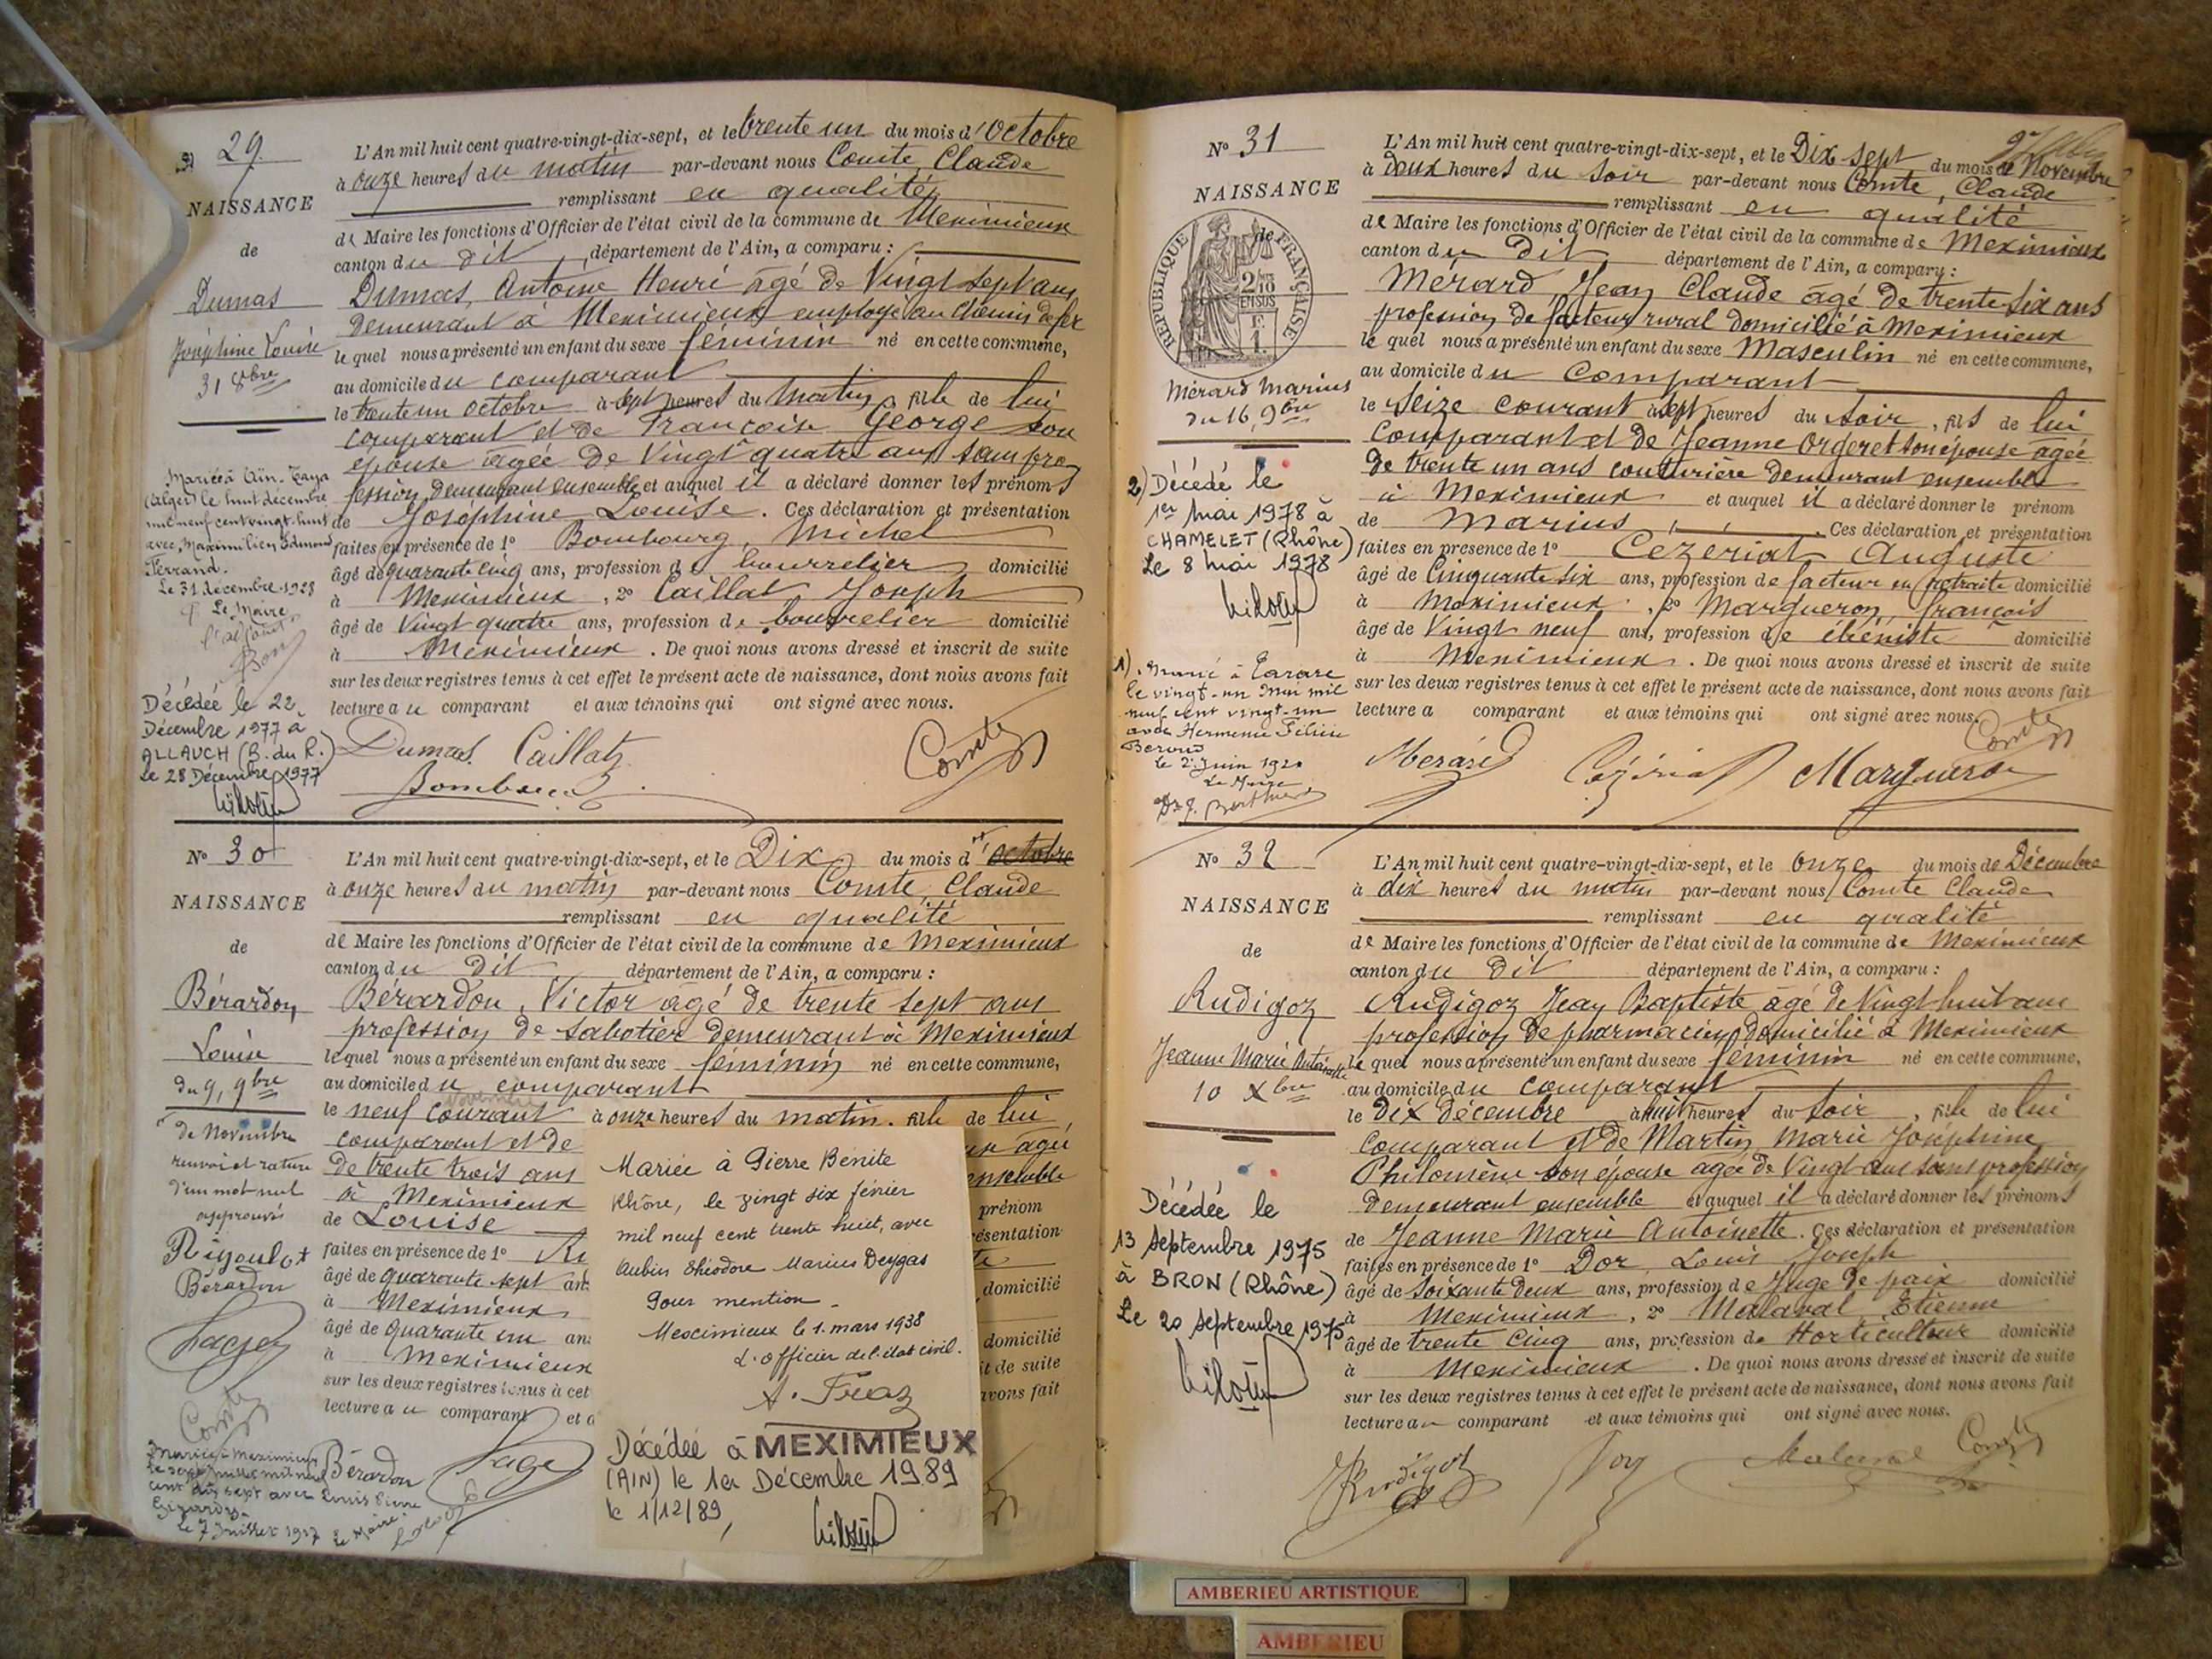 29
NAISSANCE
de
Dumas
Joséphine Louise
31 8bre
Mariée à Aïn-Taya
(Alger) le huit décembre
mil neuf cent vingt-huit
avec Maximilien Edmond
Ferrand.
Le 31 décembre 1928
Le Maire
Décédée le 22
Décembre 1977 à
ALLAUCH (B. du R.)
Le 28 Décembre 1977
L'An mil huit cent quatre-vingt-dix-sept, et le trente un du mois d'Octobre
à onze heures du matin par-devant nous Comte Claude
remplissant en qualité
de Maire les fonctions d'Officier de l'état civil de la commune de Meximieux
canton du dit, département de l'Ain, a comparu :
Dumas, Antoine Henri âgé de Vingt sept ans
demeurant à Meximieux employé au chemin de fer
le quel nous a présenté un enfant du sexe féminin né en cette commune,
au domicile du comparant
le trente un octobre à sept heures du matin, fille de lui
comparant et de Francoise George son
épouse âgée de Vingt quatre ans sans pro
fession demeurant ensemble et auquel il a déclaré donner les prénoms
de Joséphine Louise. Ces déclaration et présentation
faites en présence de 1º Bombourg, Michel
âgé de quarante cinq ans, profession de bourrelier domicilié
à Meximieux, 2º Caillat Joseph
âgé de Vingt quatre ans, profession de bourrelier domicilié
à Meximieux. De quoi nous avons dressé et inscrit de suite
sur les deux registres tenus à cet effet le présent acte de naissance, dont nous avons fait
lecture au comparant et aux témoins qui ont signé avec nous.
Dumas Caillat Comte
Nº 30
NAISSANCE
de
Bérardon
Louise
du 9, 9bre
de Novembre
renvoi et rature
d'un mot nul
approuvés
Rigoulot
Bérardon
Comte
Mariée à Meximieux
le sept Juillet mil neuf
cent dix sept avec Louis Pierre
Le 7 Juillet 1917 Le Maire
L'An mil huit cent quatre-vingt-dix-sept, et le Dix du mois d' Octobre
à onze heures du matin par-devant nous Comte, Claude
remplissant en qualité
de Maire les fonctions d'Officier de l'état civil de la commune de Meximieux
canton du dit département de l'Ain, a comparu :
Bérardon, Victor âgé de trente sept ans
profession de sabotier demeurant à Meximieux
lequel nous a présenté un enfant du sexe féminin né en cette commune,
au domicile du comparant
le neuf courant à onze heures du matin. fille de lui
comparant et de
de trente trois ans ensemble
à Meximieux prénom
de Louise
faites en présence de 1º
âgé de quarante sept domicilié
à Meximieux
âgé de quarante un domicilié
à Meximieux it de suite
sur les deux registres tenus à cet avons fait
lecture au comparant et a
Bérardon
Mariée à Pierre Bénite
Rhône, le vingt six février
mil neuf cent trente huit, avec
Aubin Théodore Marius Deygas
Pour mention
Meximieux le 1. mars 1938
L'officier de l'état civil.
Décédée à MEXIMIEUX
(AIN) le 1er Décembre 1989
le 1/12/89
Nº 31
NAISSANCE
de
REPUBLIQUE FRANÇAISE
2/10 EN SUS
Mérard Marius
du 16, 9bre
2) Décédé le
1er Mai 1978 à
CHAMELET (Rhône)
Le 8 mai 1978
1). Marié à Tarare
le vingt-un Mai mil
neuf cent vingt-un
avec Hermenie Félicie
le 2 Juin 1921
Le Maire
L'An mil huit cent quatre-vingt-dix-sept, et le Dix sept du mois de Novembre
à Deux heures du soir par-devant nous Comte, Claude
remplissant en qualité
de Maire les fonctions d'Officier de l'état civil de la commune de Meximieux
canton du dit département de l'Ain, a comparu :
Mérard Jean Claude âgé de trente six ans
profession de facteur rural domicilié à Meximieux
le quel nous a présenté un enfant du sexe Masculin né en cette commune,
au domicile du Comparant
le Seize courant à sept heures du soir, fils de lui
Comparant et de Jeanne Orgeret son épouse âgée
de trente un ans couturière demeurant ensemble
à Meximieux et auquel il a déclaré donner le prénom
de Marius. Ces déclaration et présentation
faites en présence de 1º Cezeriat Auguste
âgé de Cinquante six ans, profession de facteur en retraite domicilié
à Meximieux, 2º Margueron, françois
âgé de Vingt neuf ans, profession de ébéniste domicilié
à Meximieux. De quoi nous avons dressé et inscrit de suite
sur les deux registres tenus à cet effet le présent acte de naissance, dont nous avons fait
lecture a comparant et aux témoins qui ont signé avec nous.
Comte
Merard Cézériat Margueron
Nº 32
NAISSANCE
de
Rudigoz
Jeanne Marie Antoinette
10 Xbre
Décédée le
13 Septembre 1975
à BRON (Rhône)
Le 20 Septembre 1975
L'An mil huit cent quatre-vingt-dix-sept, et le onze du mois de Décembre
à dix heures du matin par-devant nous Comte Claude
remplissant en qualité
de Maire les fonctions d'Officier de l'état civil de la commune de Meximieux
canton du dit département de l'Ain, a comparu :
Rudigoz Jean Baptiste âgé de Vingt huit ans
profession de pharmacien domicilié à Meximieux
le quel nous a présenté un enfant du sexe féminin né en cette commune,
au domicile du comparant
le Dix décembre à huit heures du soir, fille de lui
comparant et de Martin Marie Joséphine
Philomène son épouse âgée de Vingt ans sans profession
demeurant ensemble et auquel il a déclaré donner les prénoms
de Jeanne Marie Antoinette. Ces déclaration et présentation
faites en présence de 1º Dor Louis Joseph
âgé de soixante deux ans, profession de Juge de paix domicilié
à Meximieux, 2º Malaval Etienne
âgé de trente cinq ans, profession de Horticulteur domicilié
à Meximieux. De quoi nous avons dressé et inscrit de suite
sur les deux registres tenus à cet effet le présent acte de naissance, dont nous avons fait
lecture au comparant et aux témoins qui ont signé avec nous.
Rudigoz Dor Malaval Comte
AMBERIEU ARTISTIQUE
AMBERIEU